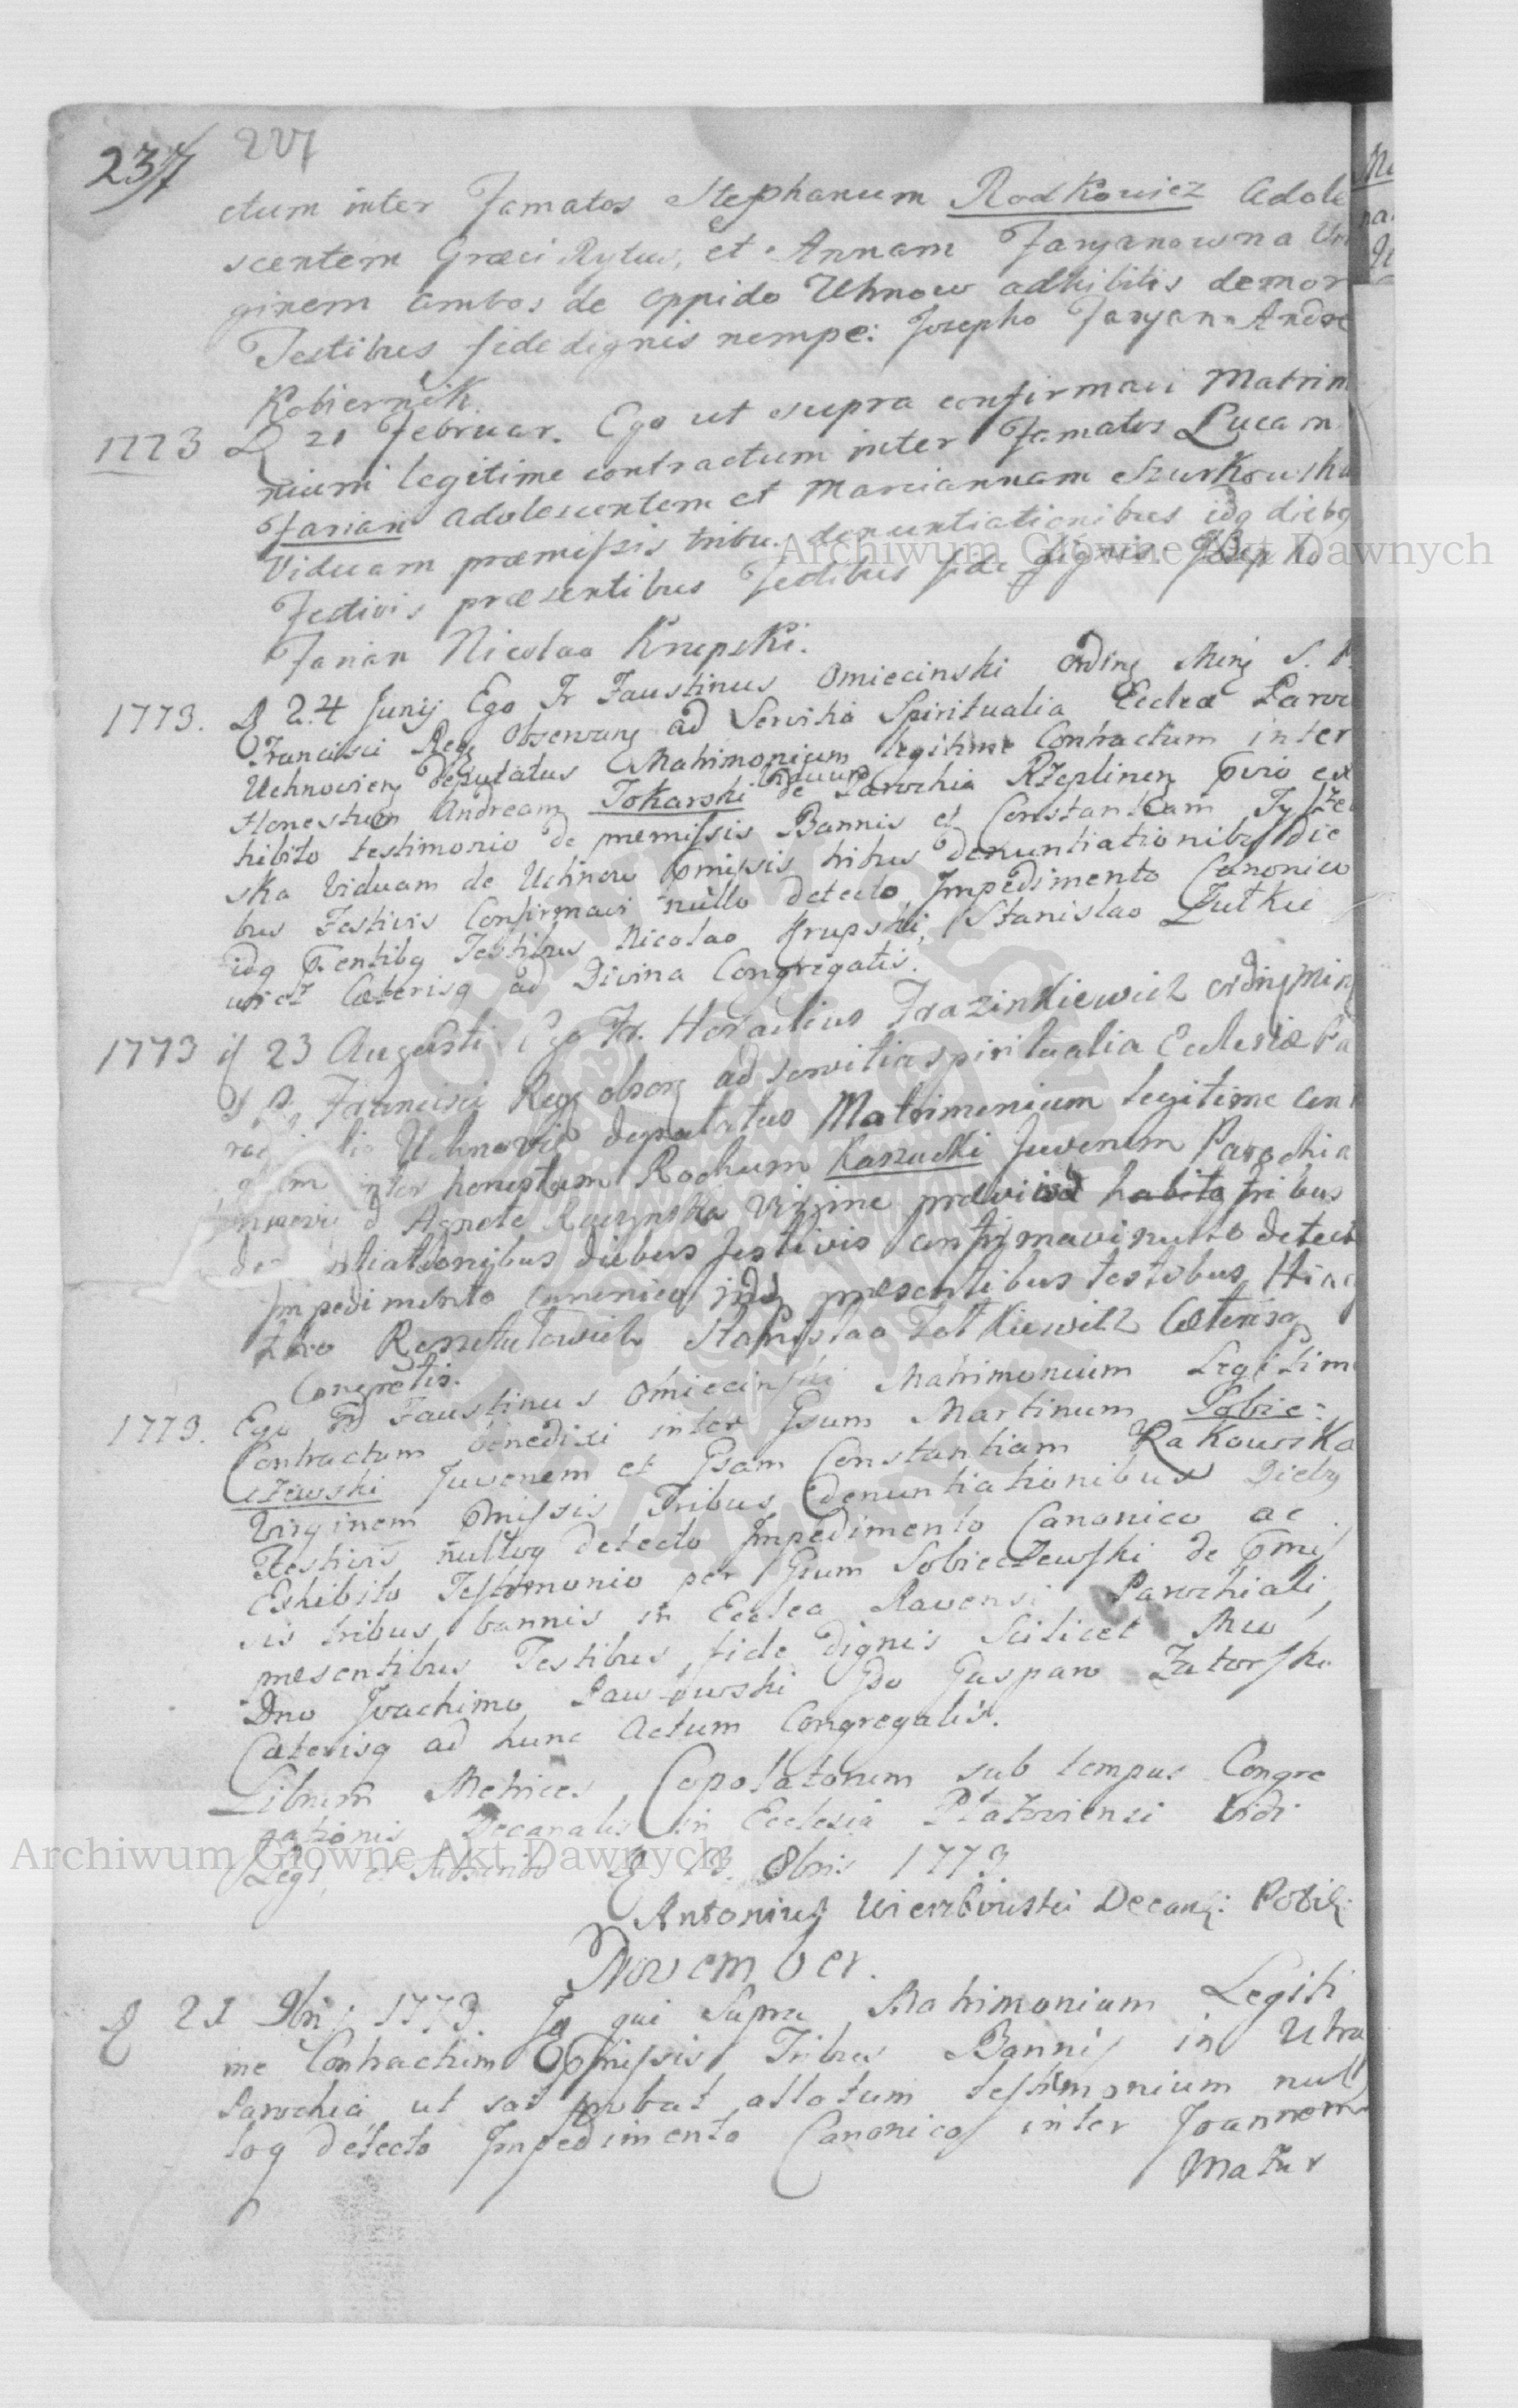 237 227
ctum inter Famatos Stephanum Rodkowicz Adole
scentem Græci Rytus, et Annam Faryanowna Vir
ginem ambos de oppido Uhnow adhibitis demor
Testibus fide dignis nempe: Josepho Faryan Andre
Kobiernik.
1773 D 21 Februar. Ego ut supra confirmavi Matrim
nium legitime contractum inter Famatos Lucam
Farian adolescentem et Mariannam Szurkowska
Viduam præmissis tribu. denuntiationibus idq diebq
Festivis præsentibus Testibus fide dignis Josepho
Farian Nicolao Krupski.
1773. D 24 Junij Ego Fr Faustinus Omiecinski Ording Ming S. P.
Francisci Reg Observang ad Servitia Spiritualia Eccleæ Paroc
Uchnovieng deputatus Matrimonium legitime Contractum inter
Honestum Andream Tokarski Viduum de Parochia Rzeplineng pvio ex
hibito testimonio de præmissis Bannis et Constantiam
ska Viduam de Uchnow pmissis tribus denuntiationibq die
bus Festivis Confirmavi nullo detecto Impedimento Canonico
idq psentibq Testibus Nicolao Krupski, Stanislao Zutkie
wicz Cæterisq ad Divina Congregatis.
1773 d 23 Augusti Ego Fr. Heraclius Frazinkiewicz ording Ming
S P. Francisci Reg obserg ad servitia spiritualia Ecclesiæ Pa
Uchnovie deputatus Matrimonium legitime cont
inter honestum Rochum Karzucki Juvenem Parochia
d Agnete Raczynska Virgine prævijsq habito tribus
de ntiationibus diebus festivis confirmavi nullo detect
Impedimento cannonico idq præsentibus testibus Hiac
tho Stanislao Zotkiewicz Cæterisq
Congretis.
1773. Ego Fr Faustinus Omiecinski Matrimonium Legitim
Contractum benedixi inter Gsum Martinum Sobie:
czewski Juvenem et Gsam Constantiam Rakowska
Virginem pmissis Tribus denuntiationibus Diebq
Festivis nulloq detecto Impedimento Canonico ac
Exhibito Testimonio per Gsum Sobieczewski de pmis
sis tribus bannis in Ecclea Ravensi Parochiali,
præsentibus Testibus fide dignis Scilicet
Dno Joachimo Pawłowski Gso Gaspare Zatorski
Cæterisq ad hunc Actum Congregatis.
Librum Metrices Copolatorum sub tempus Congre
gationis Decanalis in Ecclesia Vidi
Legi, et subscribo D 13. 8bris 1773.
Antonius Wierzbowski Decang:
November.
D 21 9bris 1773. Jd qui Supra Matrimonium Legiti
me Contractum pmissis Tribus Bannis in Utra
Parochia ut sat pbat allatum testimonium nul
loq detecto Impedimento Canonico inter Joannem
Matur
Archiwum Główne Akt Dawnych
Archiwum Główne Akt Dawnych